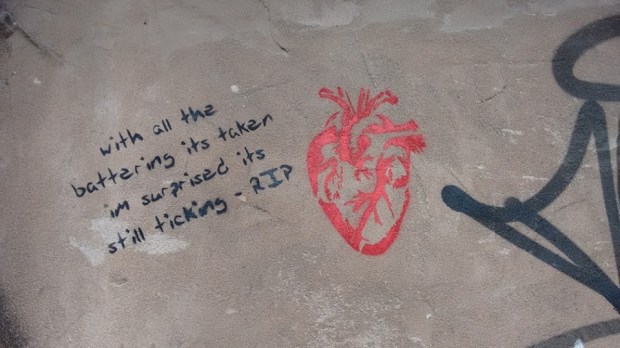 with all the
battering its taken
im surprised its
still ticking - RIP